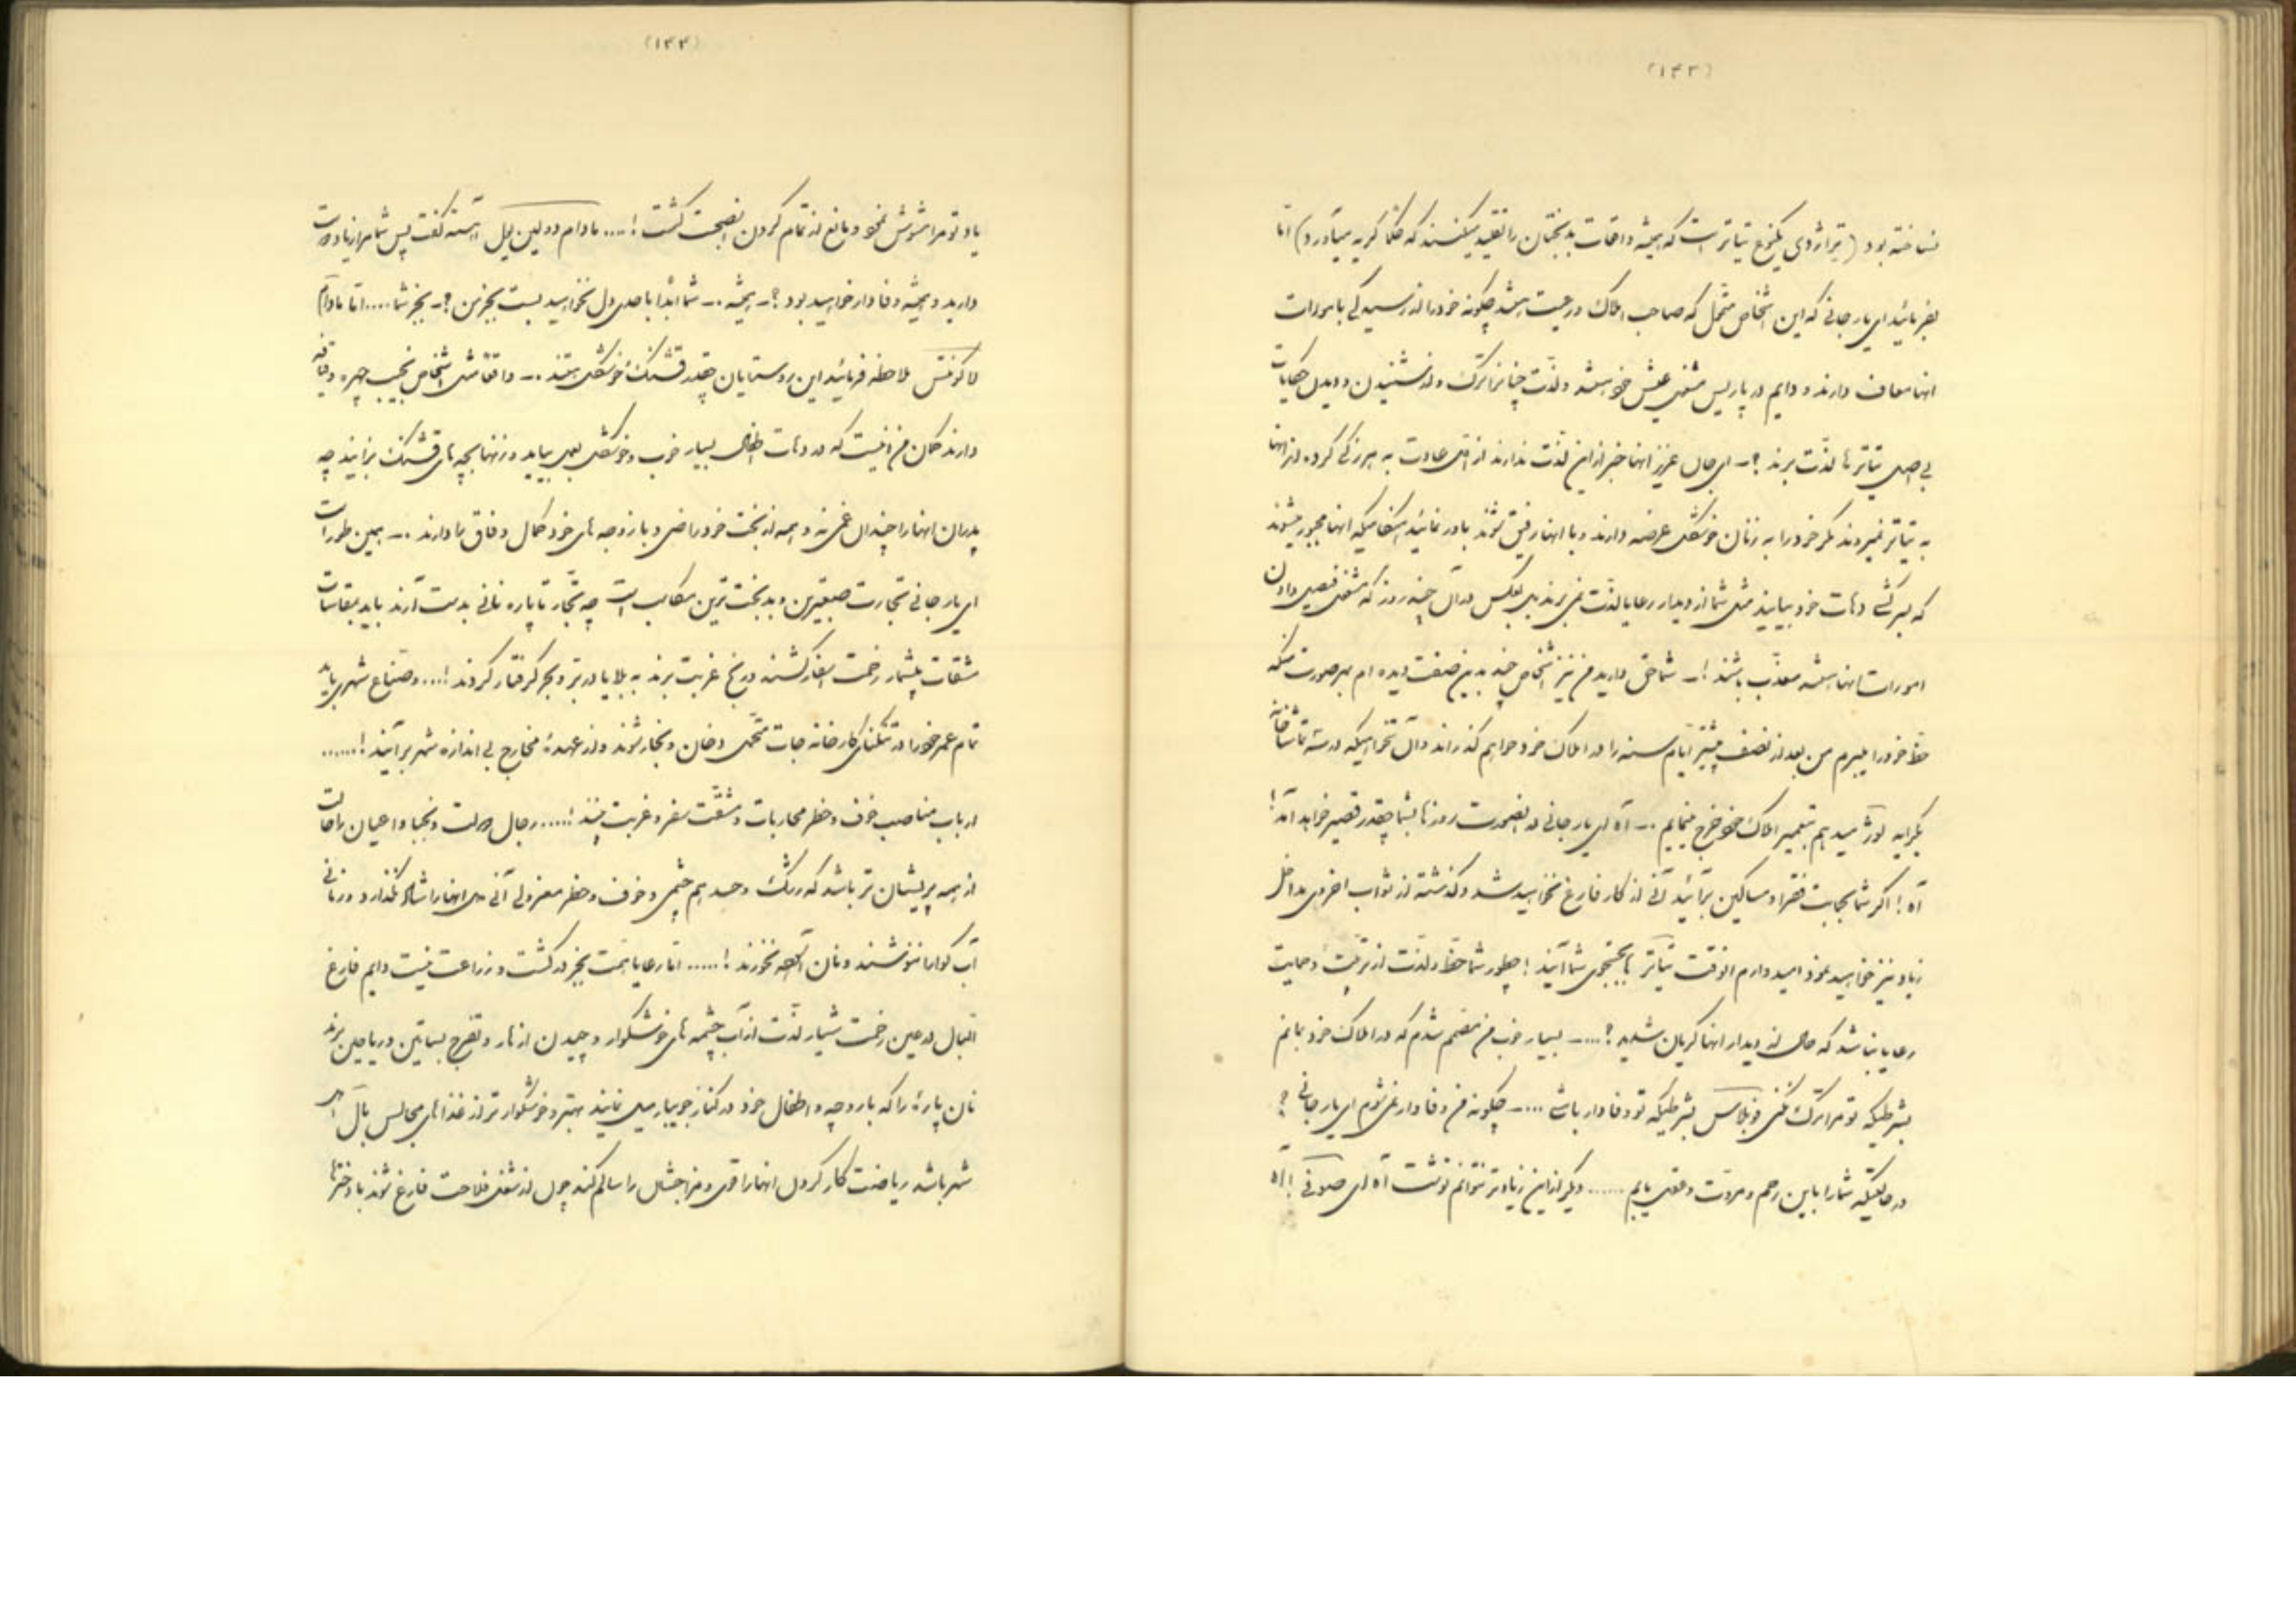 (۱۴۳)
نساخته بود (تراژدی یکنوع تیاتر است که همیشه واقعات بدبختان را تقلید میکنند که حکماً گریه میآورد) اما
بفرمائید ای یار جانی که این اشخاص متمول که صاحب املاک و رعیت باشند چگونه خود را از رسیدگی بامورات
آنها معاف دارند و دایم در پاریس مشغول عیش خود باشند و لذت چنانرا ترک و از شنیدن و دیدن حکایات
بی اصل تیاترها لذت برند ؟ ــ ای جان عزیز آنها خبر از این لذت ندارند از اول عادت به هرزگی کرده از آنها
به تیاتر نمیروند مگر خود را به زنان خوشگل عرضه دارند و با آنها رفیق شوند باور نمائید هنگامیکه آنها مجبور میشوند
که بسرکشی دهات خود بیایند مثل شما از دیدار رعایا لذت نمی برند بل بعکس در آن چند روز که مشغول فیصل دادن
امورات آنها باشند معذب باشند ! ــ شما حق دارید من نیز اشخاص چند بدین صفت دیده ام بهر صورت منکه
حظ خود را میبرم من بعد از نصف بیشتر ایام سنه را در املاک خود خواهم گذراند و آن تنخواهیکه در سنه تماشاخانه
بکرایه لوژ میدهم بتعمیر املاک خود خرج مینمایم ــ آه ای یار جانی در اینصورت روزها بشما چقدر قصیر خواهد آمد !
آه ! اگر شما بحمایت فقرا و مساکین برآئید آنی از کار فارغ نخواهید شد و گذشته از ثواب اخروی مداخل
زیاد نیز خواهید نمود امیدوارم آنوقت تیاتر بجستجوی شما آیند ! چطور شما حظ و لذت از تربیت و حمایت
رعایا نباشد که حال از دیدار آنها گریان شدید ؟ .... ــ بسیار خوب من مصمم شدم که در املاک خود بمانم
بشرطیکه تو مرا ترک نکنی و بلاسس بشرطیکه تو وفادار باشی .... ــ چگونه من وفادار نمی شوم ای یار جانی ؟
در حالتیکه شما را باین رحم و مروت و خوبی یابم ...... دیگر از این زیادتر نتوانم نوشت آه ای صوفی ! آه
(۱۴۴)
یاد تو مرا مشوش نمود و مانع از تمام کردن نصیحت گشت ! .... مادام دولین بیل آهسته گفت پس شما مرا زیاد دوست
دارید و همیشه وفادار خواهید بود ؟ ــ همیشه ــ شما ابداً با احدی دل نخواهید بست بجز من ؟ ــ بجز شما .... اما مادام
لاکونتس ملاحظه فرمائید این روستایان چقدر قشنگ و خوشگل هستند ــ واقعاً مثل اشخاص نجیب چهره و قیافه
دارند گمان من نیست که در دهات اطفال بسیار خوب و خوشگل بعمل بیاید و زنها بچه های قشنگ بزایند چه
پدران آنها را چندان غمی نه و همه از بخت خود راضی و با زوجه های خود کمال وفاق ها دارند ــ همین طور است
ای یار جانی تجارت صعبترین و بدبخت ترین مکاسب است چه تجار تا پاره نانی بدست آرند باید بمقاسات
مشقات بیشمار زحمت اسفار کشند و رنج غربت برند به بلایا در بر و بحر گرفتار گردند ! .... و صناع شهر باید
تمام عمر خود را در تنگنای کارخانه جات متحمل دخان و بخار شوند و از عهدهٔ مخارج بی اندازه شهر برآیند ! ......
ارباب مناصب خوف و خطر محاربات و مشقت سفر و غربت بینند ! ..... رجال دولت و نجبا و اعیان را حالت
از همه پریشان تر باشد که رشک و حسد هم چشمی و خوف و خطر معزولی آنی دل آنها را شاد نگذارد و زمانی
آب گوارا ننوشند و نان آسوده نخورند ! ..... اما رعایا همت بجز در کشت و زراعت نیست دایم فارغ
البال در عین زحمت شیار لذت از آب چشمه های خوشگوار و چیدن ازهار و تفرج بساتین و ریاحین برند
نان پارهٔ را که با زوجه و اطفال خود در کنار جویبار میل نمایند بهتر و خوشگوارتر از غذاهای مجالس بال اهل
شهر باشد ریاضت کار کردن آنها را قوی و مزاجشان را سالم کند چون از شغل فلاحت فارغ شوند با دخترها